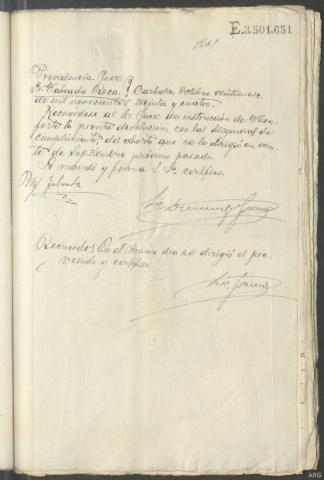 E.3.501.651
Providencia Juez
Sr. Taboada Roca. } Carballo, Octubre veintinueve
de mil novecientos treinta y cuatro.
Recuérdese al Sr. Juez de instrucción de Mon-
forte la pronta devolución, con las diligencias de
cumplimiento, del exhorto que se le dirigió en vein-
te de Septiembre próximo pasado.
Lo mandó y firma S. Sª. certifico.
Recuerdo: En el mismo día se dirigió el pre-
venido y certifico
ARG